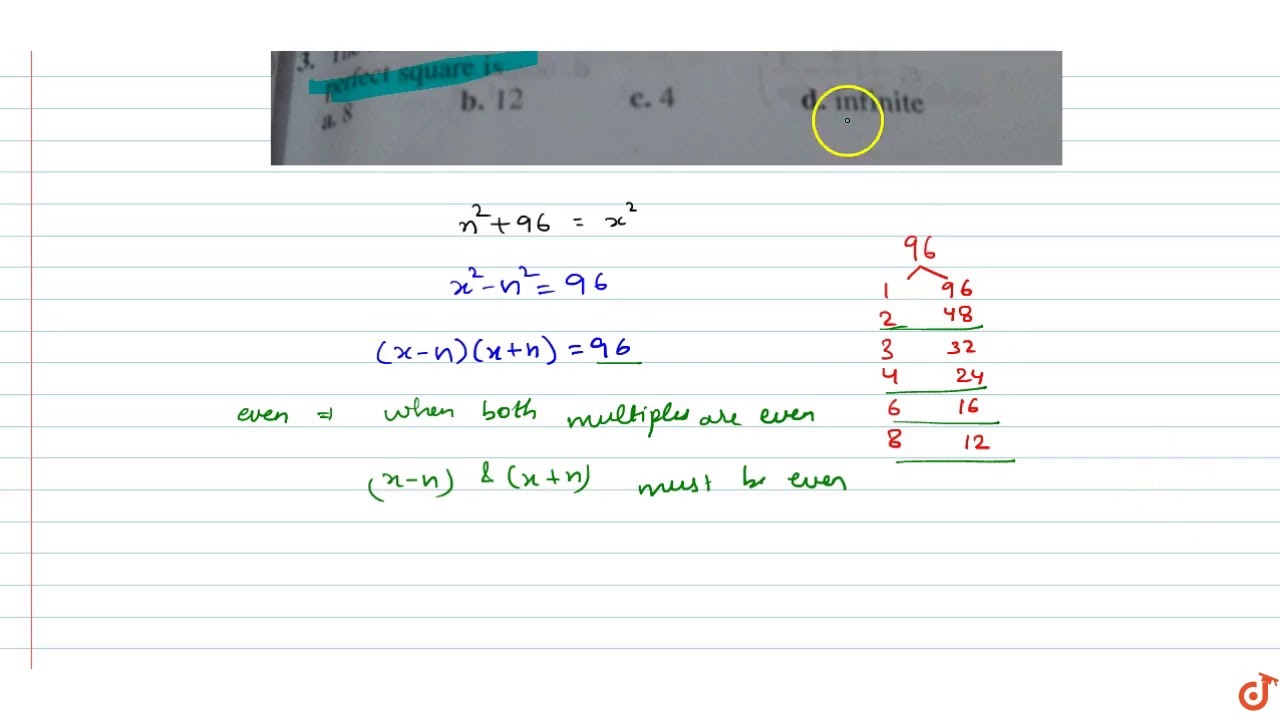 3.
perfect square is
a. 8 b. 12 c. 4 d. infinite
n² + 96 = x²
x² - n² = 96
(x-n)(x+n) = 96
even ⇒ when both multiples are even
(x-n) & (x+n) must be even
96
1 96
2 48
3 32
4 24
6 16
8 12